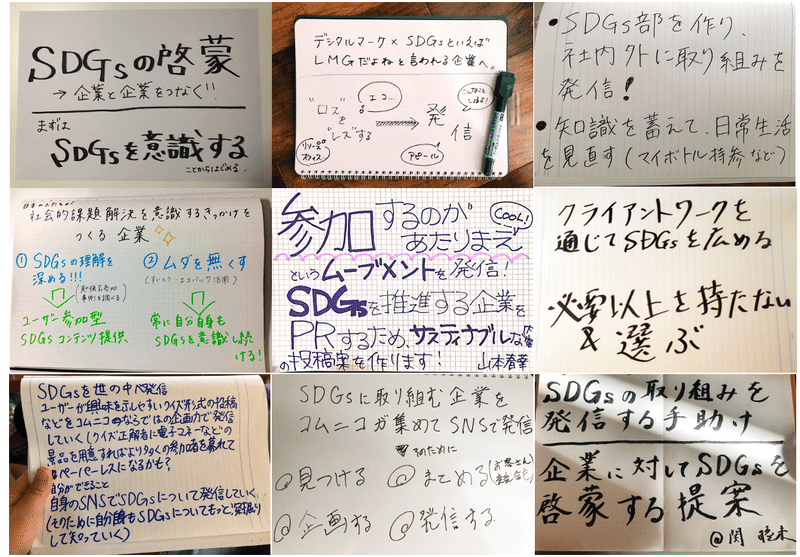 SDGsの啓蒙
→ 企業と企業をつなぐ!!
まずは
SDGsを意識する
ことからはじめる。
デジタルマーク× SDGsといえば
LMGだよねと言われる企業へ。
"ロス"を
"レス"する
エコ…
発信
こんなこと
リリース
オフィス
アピール
•SDGs部を作り、
社内外に取り組みを
発信!
•知識を蓄えて、日常生活
を見直す(マイボトル持参など)
社会的課題解決を意識するきっかけを
つくる 企業
① SDGsの理解を
深める!!!
(勉強会参加
事例を調べる)
ユーザー参加型
SDGsコンテンツ提供
② ムダを無くす
(すいとう・エコバック活用)
常に自分自身も
SDGsを意識し続
ける!
参加するのが
あたりまえ
COOL!
というムーブメントを発信!
SDGsを推進する企業を
PRするため、サスティナブルな
の投稿案を作ります!
クライアントワークを
通じてSDGsを広める
必要以上を持たない
& 選ぶ
SDGsを世の中へ発信
ユーザーが興味を示しやすいクイズ形式の投稿
などをコムニコならではの企画力で発信
していく(クイズ正解者に電子マネーなどの
景品を用意すればより多くの参加者を募れて
ペーパーレスになるかも?
自分ができること
自身のSNSでSDGsについて発信していく
(そのために自分自身もSDGsについてもっと深掘り
して知っていく)
SDGsに取り組む企業を
コムニコが集めてSNSで発信
そのために
@見つける @まとめる(お客さん
@企画する @発信する
SDGsの取り組みを
発信する手助け
企業に対してSDGsを
啓蒙する提案
@関